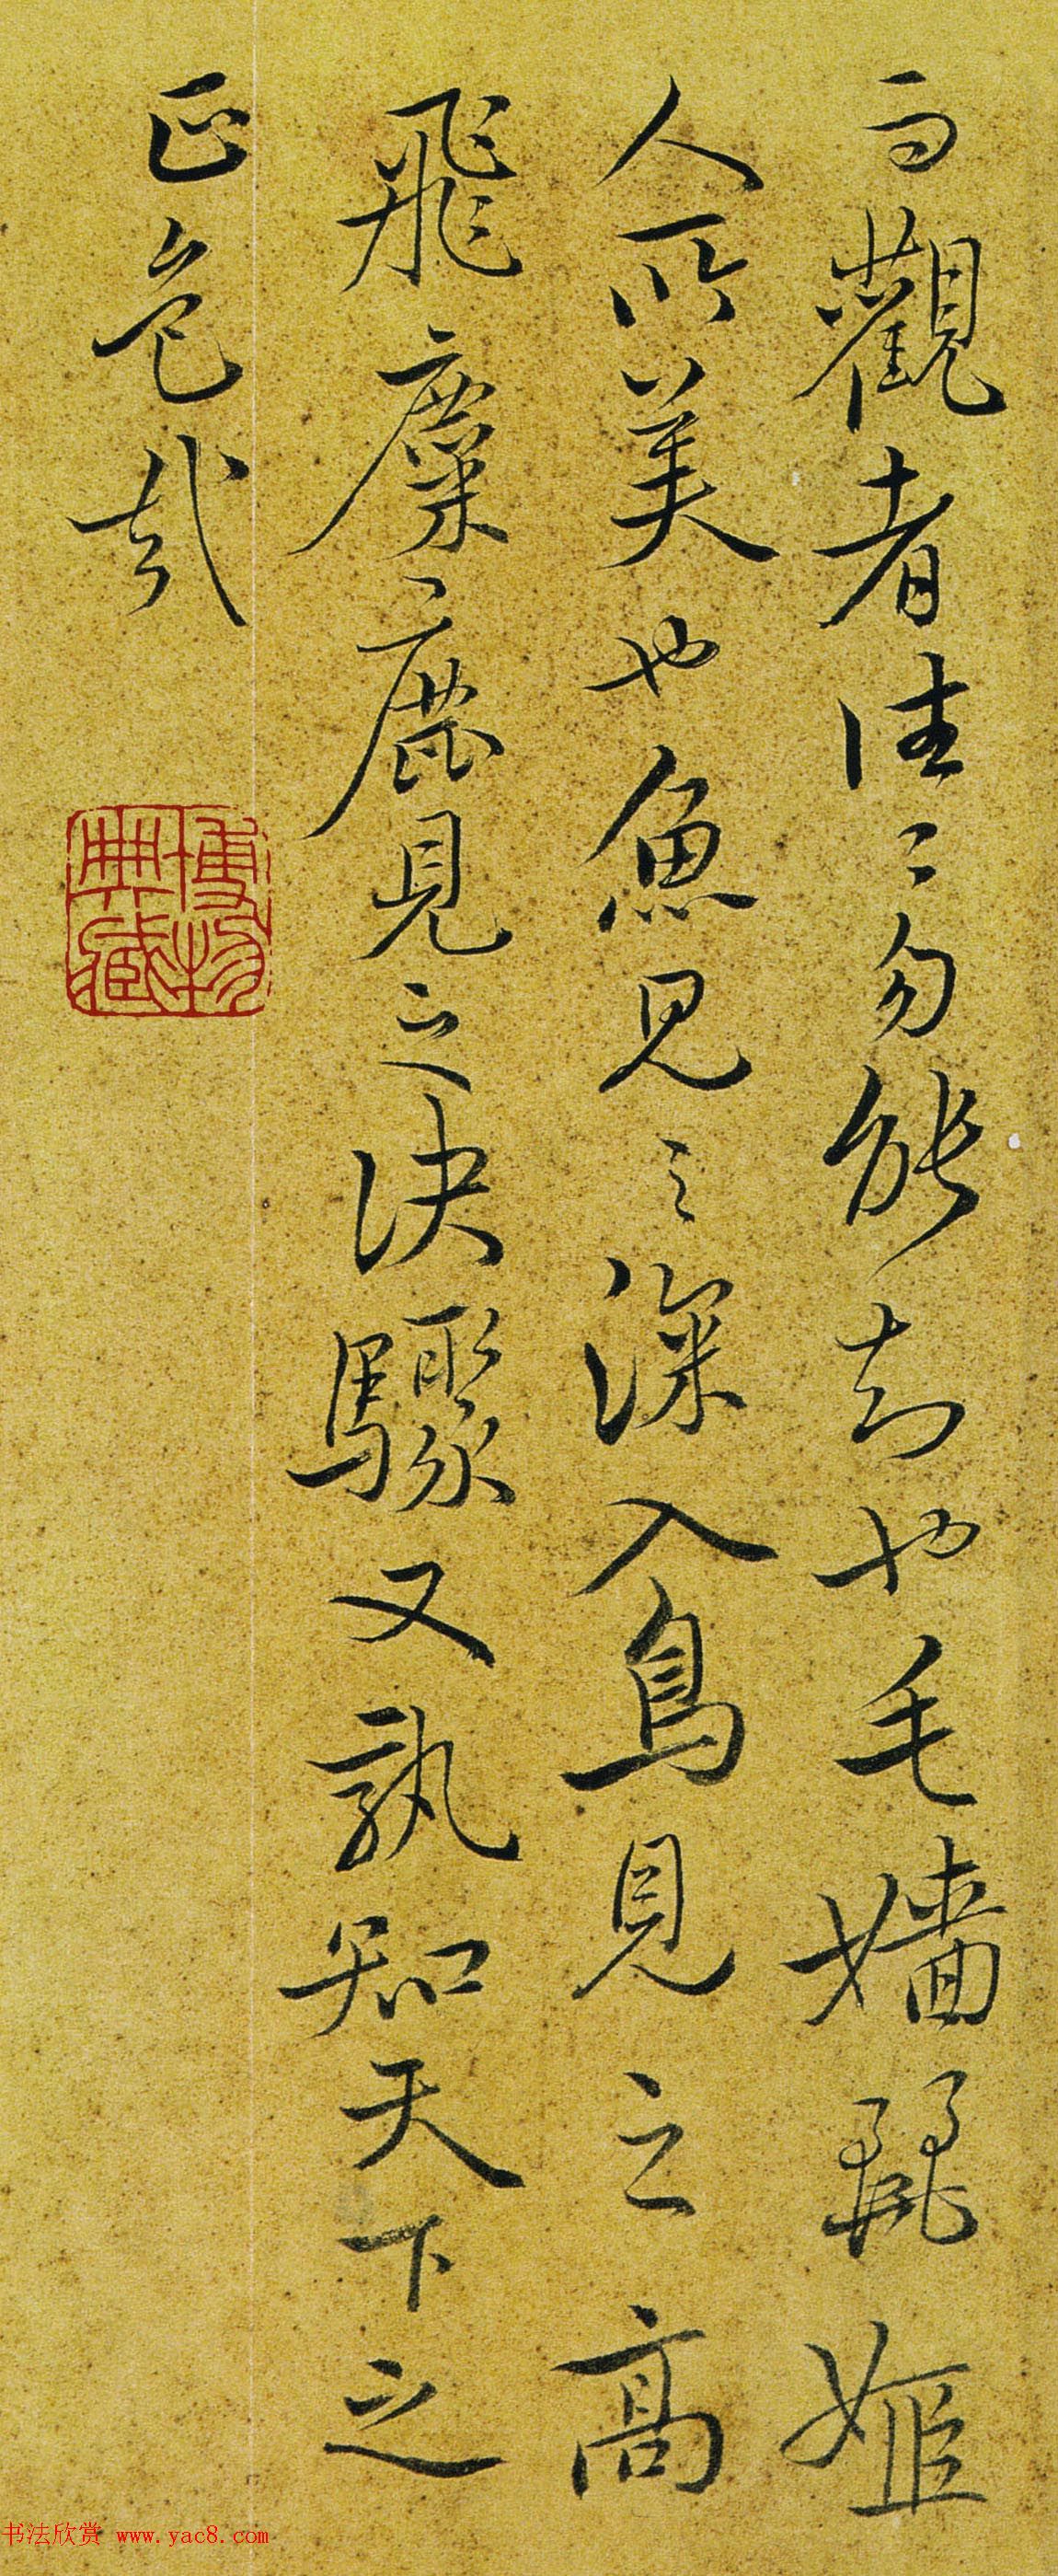 而觀者往〻勿能知也毛嬙麗姬
人所美也魚見之深入鳥見之高
飛麋鹿見之決驟又孰知天下之
正色哉
博物
典藏
书法欣赏 www.yac8.com